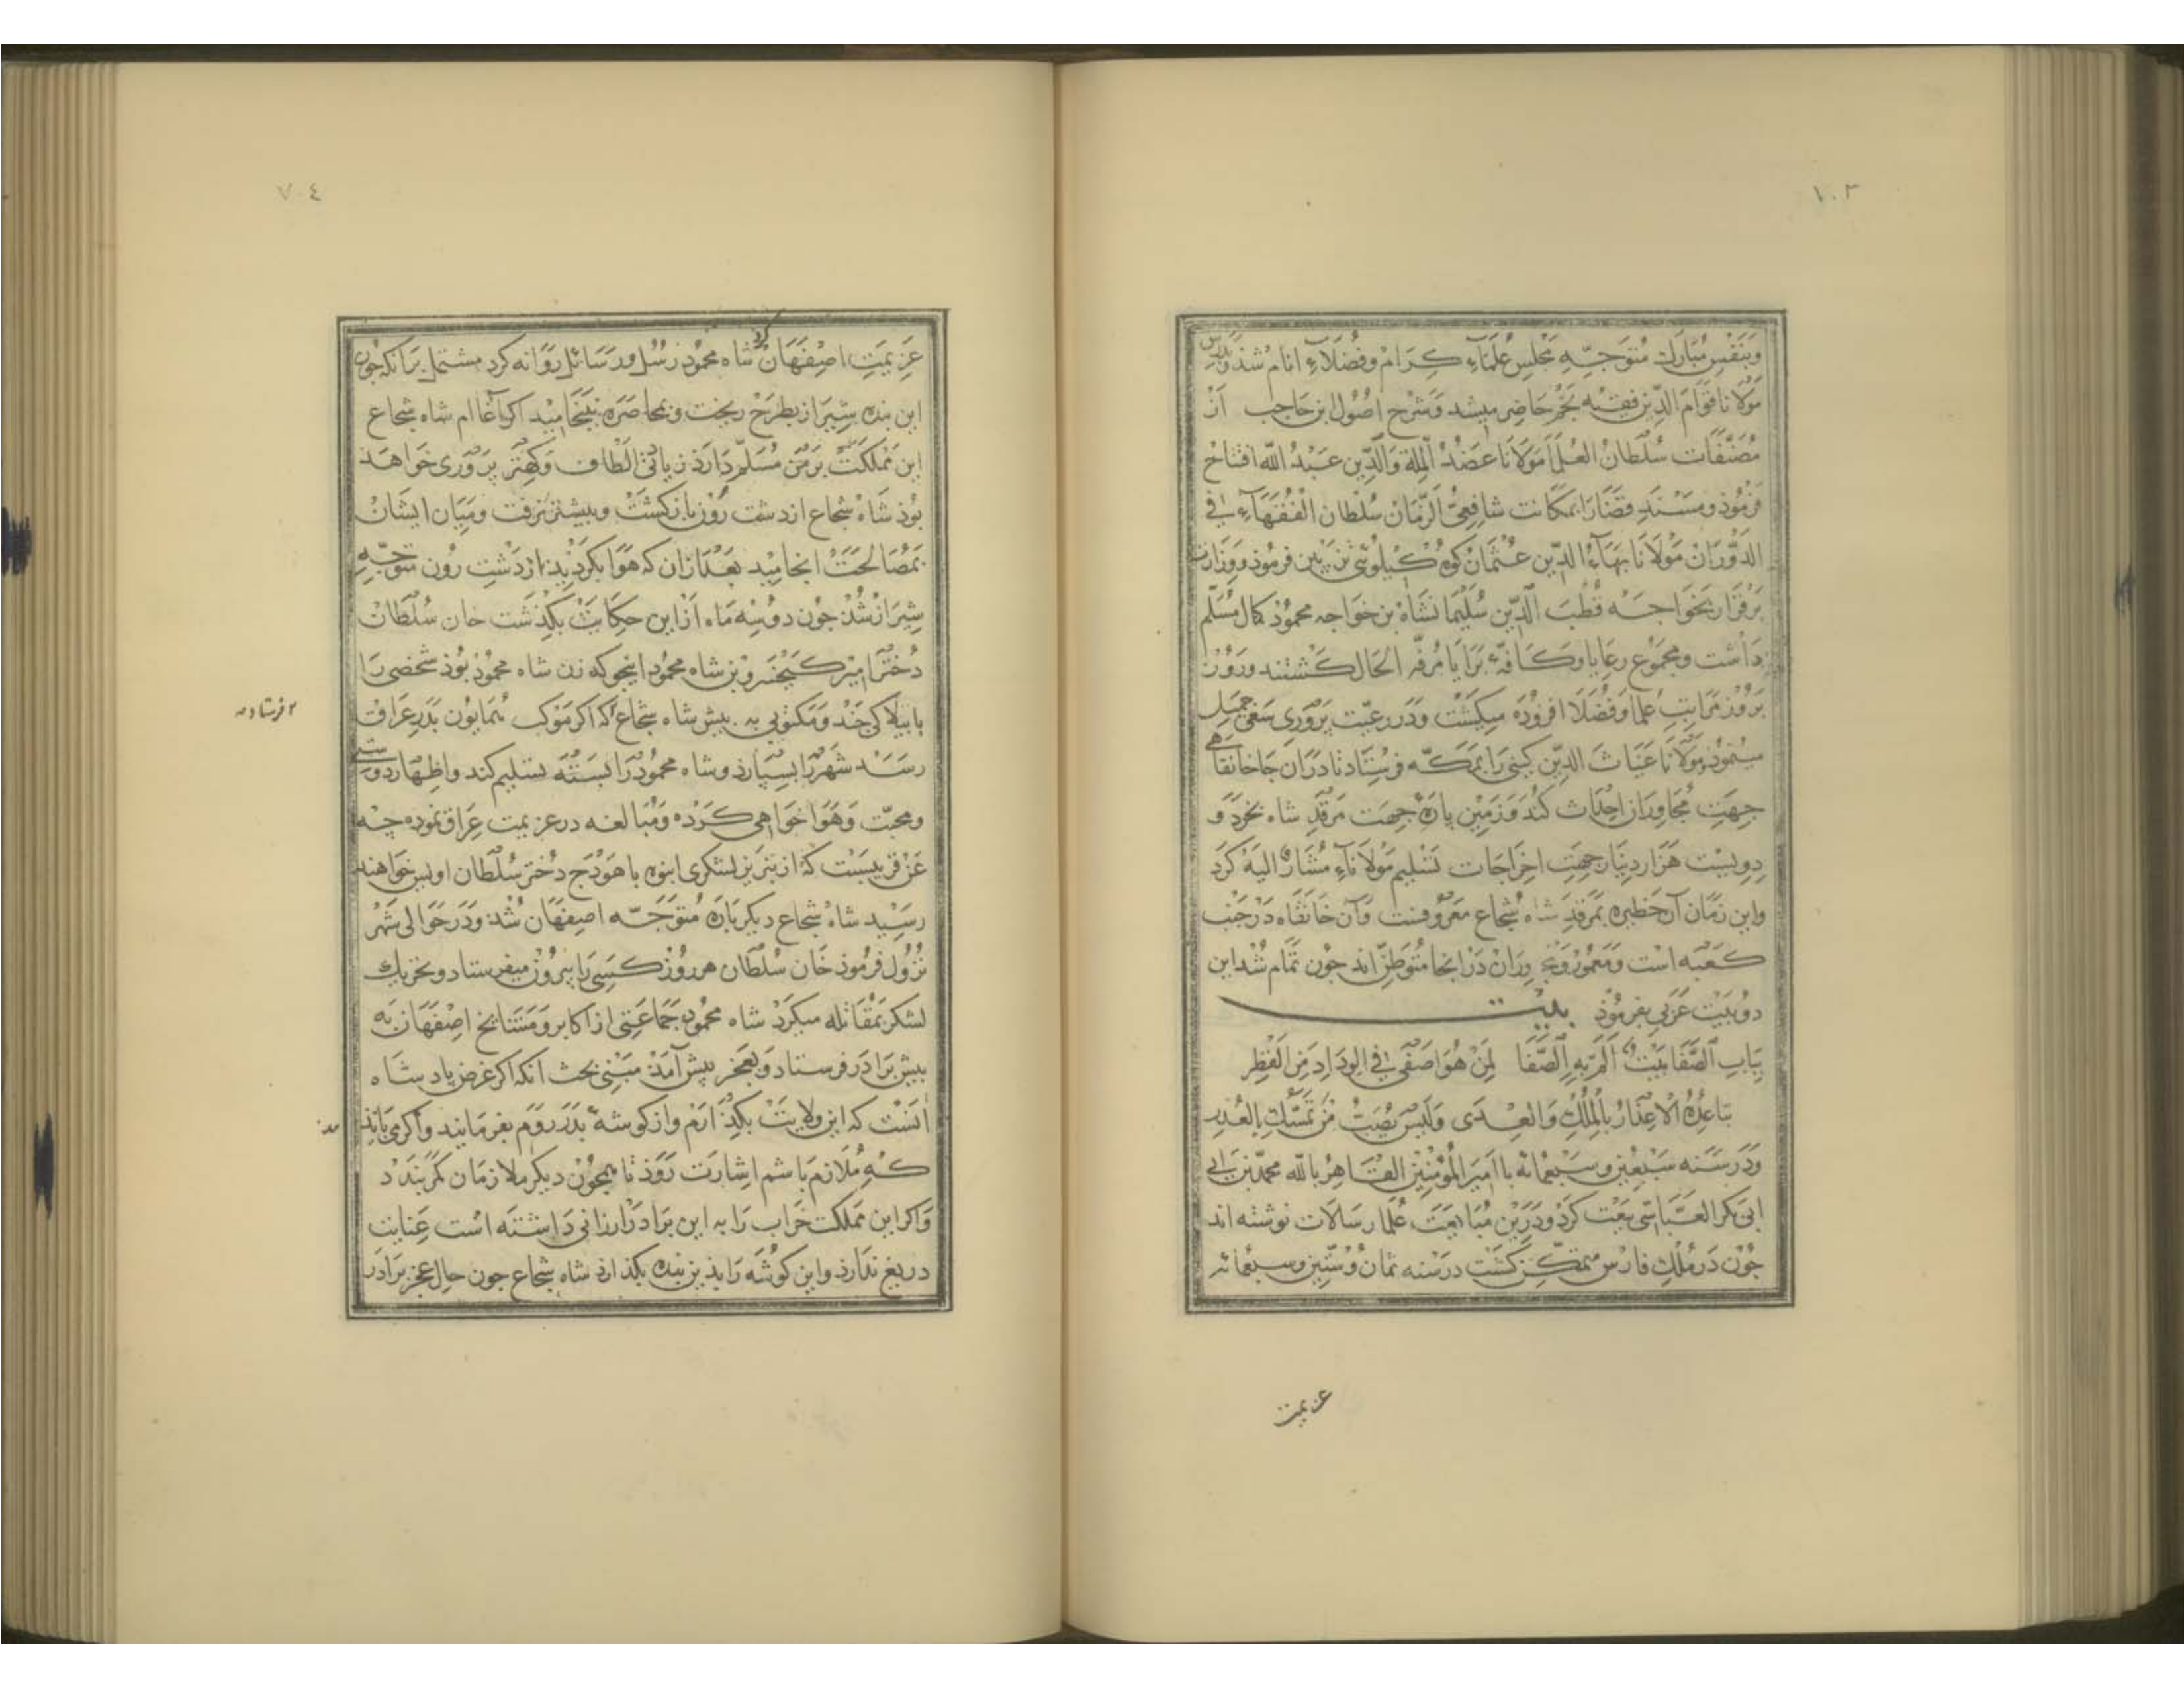 ١٠٣
وبنفس مبارك متوجه مجلس علماء كرام وفضلاء انام شذ و بدرس
مولانا قوام الدين فقيه نجم حاضر ميشد وشرح اصول ابن حاجب از
مصنفات سلطان العلما مولانا عضد الملة والدين عبد الله افتتاح
فرموذ ومسند قضا را بمكانت شافعى الزمان سلطان الفقهاء فى
الدوران مولانا بهاء الدين عثمان كوه كيلوئى تزيين فرموذ ووزارت
برقرار بخواجه قطب الدين سليمانشاه بن خواجه محموذ كمال مسلم
داشت ومجموع رعايا وكافه برايا مرفه الحال كشتند وروز
بروز مراتب علما وفضلا افزوده ميكشت ودر رعيت پرورى سعى جميل
مينموذ مولانا غياث الدين كيتى را بمكه فرستاد تا در ان جا خانقاهى
جهت مجاوران احداث كند وزمين پاره جهت مرقد شاه بخرد و
دويست هزار دينار جهت اخراجات تسليم مولاناء مشار اليه كرد
واين زمان آن حظيره بمرقد شاه شجاع معروفست وآن خانقاه در جنب
كعبه است ومعمور ومجاوران در انجا متوطن اند جون تمام شد اين
دو بيت عربى بفرموذ بيت
بباب الصفا بيت الم به الصفا لمن هو اصفى فى الوداد من القطر
تباعده الاعذار بالملك والعدى وليس يصيب من تمسك بالعذر
ودر سنه سبعين وسبعمائه با امير المؤمنين القاهر بالله محمد بن ابى
ابى بكر العباسى بيعت كرد ودرين مبايعت علما رسالات نوشته اند
جون در ملك فارس متمكن كشت در سنه ثمان وستين وسبعمائه
عزيمت
٧٠٤
عزيمت اصفهان كرد شاه محموذ رسل ورسائل روانه كرد مشتمل بر انكه جون
اين بنده شيراز بطرح ريخت وبمحاصره نينجاميد اكر آغاام شاه شجاع
اين مملكت بر من مسلم دارذ زياتى الطاف وكهتر پرورى خواهد
بوذ شاه شجاع از دشت رون باز كشت وبيشتر نرفت وميان ايشان
بمصالحت انجاميد بعد از ان كه هوا بكرديد از دشت رون متوجه
شيراز شذ جون دو سه ماه از اين حكايت بكذشت خان سلطان
دختر امير كيخسرو بن شاه محمود اينجو كه زن شاه محموذ بوذ شخصى را
با بيلاكى چند ومكتوبى به پيش شاه شجاع كه اكر موكب همايون بدر عراق
٢ فرستاد صه
رسد شهر را بسپارد وشاه محموذ را بسته تسليم كند واظهار دوستى
ومحبت وهوا خواهى كرده ومبالغه در عزيمت عراق نموده چه
عن قريبست كه از تبريز لشكرى انبوه با هودج دختر سلطان اويس خواهند
رسيد شاه شجاع ديكر باره متوجه اصفهان شذ ودر حوالى شهر
نزول فرموذ خان سلطان هر روز كسى را بيرون ميفرستاد وتحريك
لشكر بمقاتله ميكرد شاه محمود جماعتى از اكابر ومشايخ اصفهان به
پيش برادر فرستاد وبعجز پيش آمد مبنى بحث انكه اكر غرض پادشاه
انست كه اين ولايت بكذارم واز كوشه بدر روم بفرمايند واكر مى بايد
كه ملازم باشم اشارت روذ تا همچون ديكر ملازمان كمر بندد
واكر اين مملكت خراب را به اين برادر ارزانى داشته است عنايت
دريغ ندارد واين كوشه را بذين بنده بكذارد شاه شجاع جون حال عجز برادر